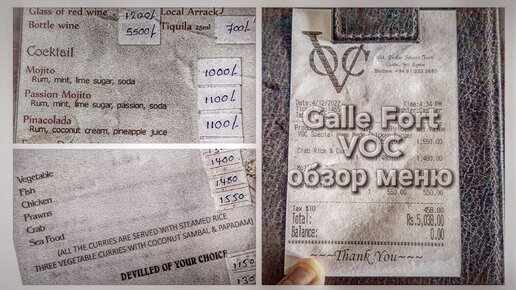 Glass of red wine 1200/-
Bottle wine 5500/-
Local Arrack
Tiquila 25ml 700/-
Cocktail
Mojito 1000/-
Rum, mint, lime sugar, soda
Passion Mojito 1100/-
Rum, mint, lime sugar, passion, soda
Pinacolada 1100/-
Rum, coconut cream, pineapple juice
Vegetable
Fish 1400
Chicken 1480
Prawns 1550
Crab
Sea Food
(ALL THE CURRIES ARE SERVED WITH STEAMED RICE
THREE VEGETABLE CURRIES WITH COCONUT SAMBAL & PAPADAM)
DEVILLED OF YOUR CHOICE
1150
VOC
Galle, Sri Lanka
Date:4/12/2022 Time:4:34 PM
Galle Fort
VOC
обзор меню
VOC Special Home Made Chicken Burger
1,550.00
Crab Rice & Curry
1,480.00
550.00 550.00
Tax %10 458.00
Total: Rs.5,038.00
Balance: 0.00
~~~Thank You~~~